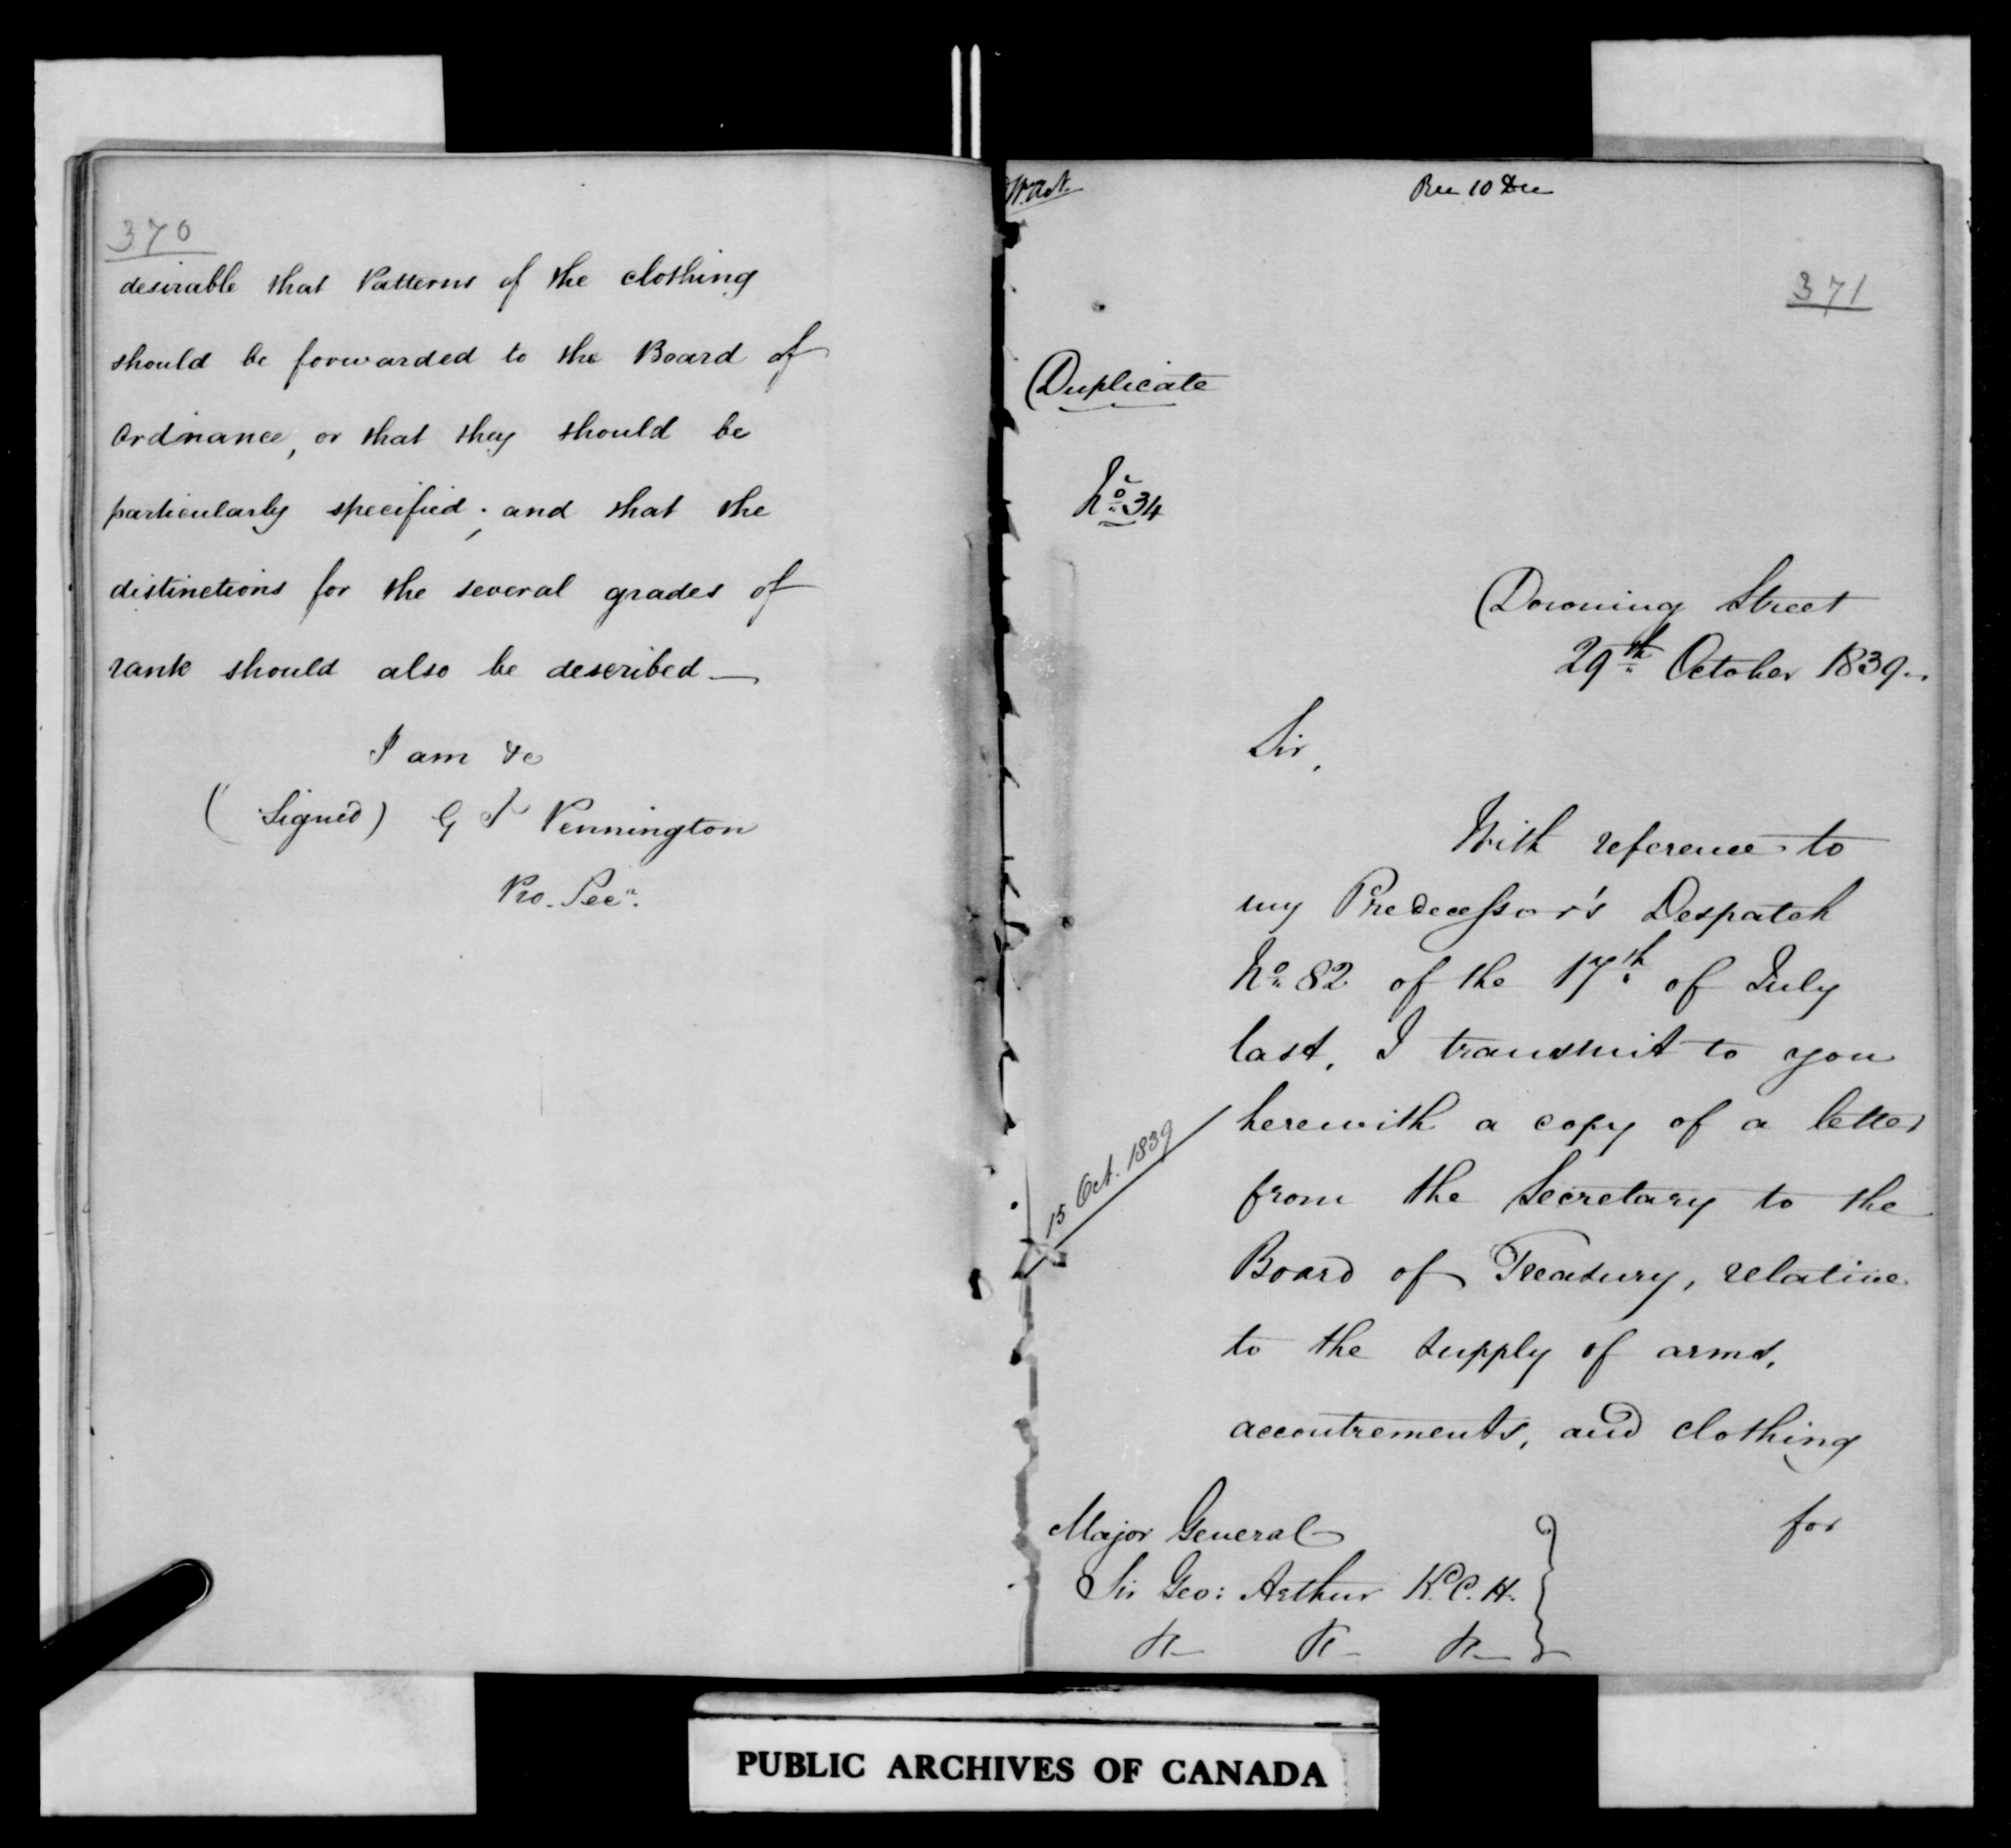 370
desirable that Patterns of the clothing
should be forwarded to the Board of
Ordnance, or that they should be
particularly specified; and that the
distinctions for the several grades of
rank should also be described —
I am &c
(Signed) G J Pennington
Pro. Secy.
Rec 10 Dec
371
Duplicate
No. 34
Downing Street
29th October 1839.
Sir,
With reference to
my Predecessor's Despatch
No. 82 of the 17th of July
last, I transmit to you
herewith a copy of a letter
15 Oct. 1839
from the Secretary to the
Board of Treasury, relative
to the supply of arms,
accoutrements, and clothing
for
Major General
Sir Geo: Arthur K.C.H.
&c &c &c
PUBLIC ARCHIVES OF CANADA